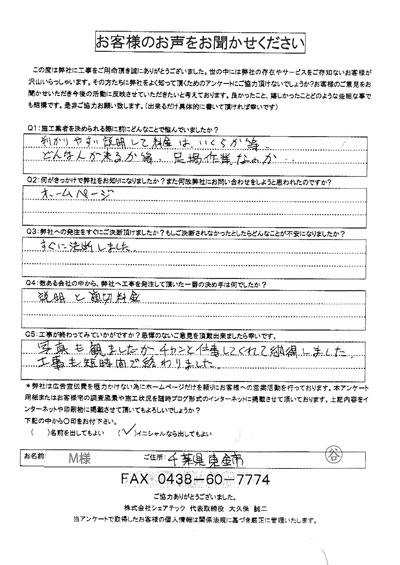 お客様のお声をお聞かせください
この度は弊社に工事をご用命頂き誠にありがとうございました。世の中には弊社の存在やサービスをご存知ないお客様が
沢山いらっしゃいます。その方たちに弊社をよく知って頂くためのアンケートにご協力頂けないでしょうか?お客様のご意見をお
聞かせいただき今後の活動に反映させていただきたいと考えております。良かったこと、嬉しかったことどのような些細な事で
も結構です。是非ご協力お願い致します。(出来るだけ具体的に書いて頂ければ幸いです)
Q1:施工業者を決められる際に前にどんなことで悩んでいましたか?
判かりやすい説明して料金は、いくらか等
どんな人が来るか等 足場作業なのか・・
Q2:何がきっかけで弊社をお知りになりましたか?また何故弊社にお問い合わせをしようと思われたのですか?
ホームページ
Q3:弊社への発注をすぐにご決断頂けましたか?もしご決断されなかったとしたらどんなことが不安になりましたか?
すぐに決断しました。
Q4:数ある会社の中から、弊社へ工事を発注して頂いた一番の決め手は何でしたか?
説明と適切料金
Q5:工事が終わってみていかがですか?忌憚のないご意見を頂戴出来ましたら幸いです。
写真も観ましたがチャンと仕事してくれて納得しました。
工事も短時間で終わりました。
*弊社は広告宣伝費を極力かけない為にホームページだけを頼りにお客様への営業活動を行っております。本アンケート
用紙またはお客様宅の調査風景や施工状況を随時ブログ形式のインターネットに掲載させて頂いております。上記内容をイ
ンターネットや印刷物に掲載させて頂いてもよろしいでしょうか?
下記の中から〇印をお付下さい。
( )名前を出してもよい (✓)イニシャルなら出してもよい
お名前: M様 ご住所: 千葉県東金市 谷
FAX 0438-60-7774
ご協力ありがとうございました。
株式会社シェアテック 代表取締役 大久保 誠二
当アンケートで取得したお客様の個人情報は関係法規に基づき厳正に管理いたします。